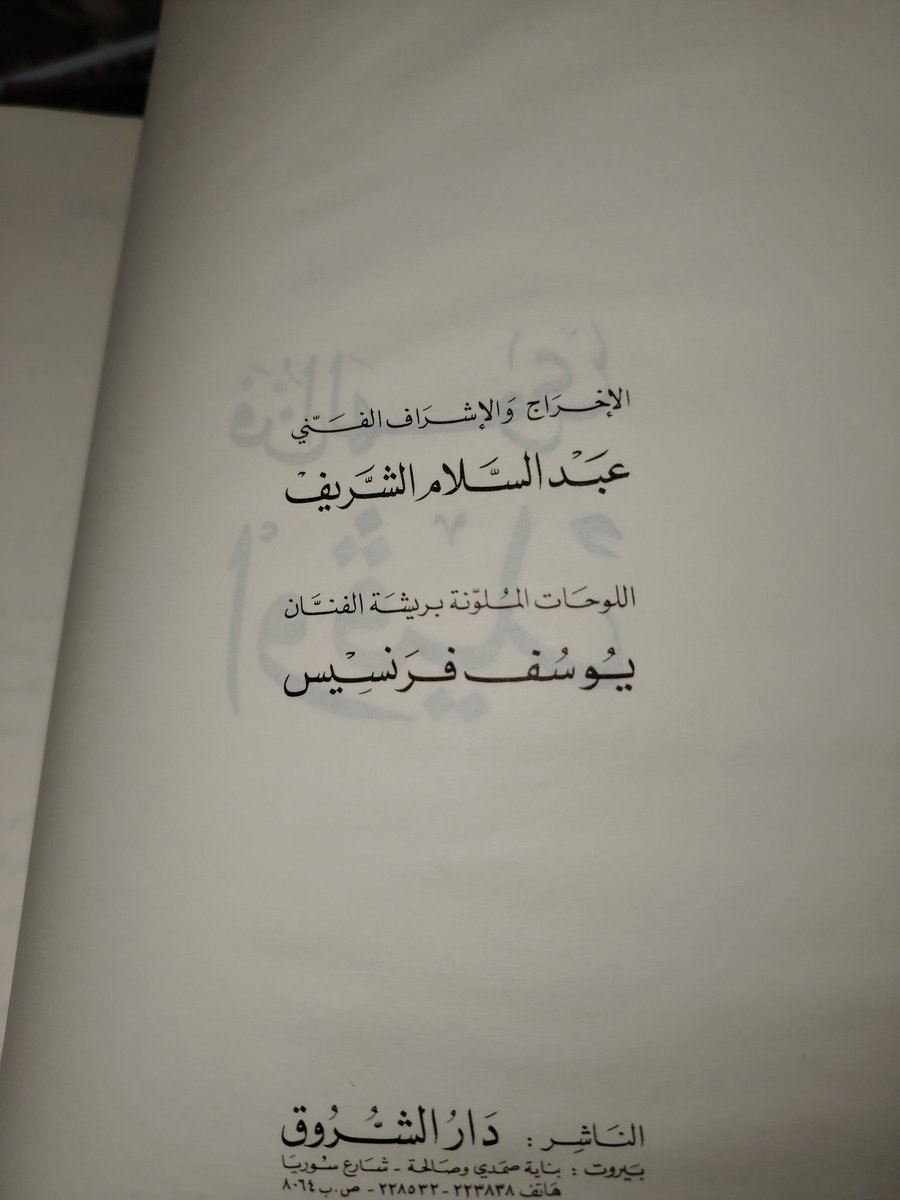 الإخرَاج وَالإشرَاف الفَنّي
عبَد السَّلام الشَّريف
اللوحَات المُلوّنة بريشَة الفنَّان
يُوسُف فرَنسِيس
النَاشِر : دَارُ الشُّرُوق
بَيروت : بناية صمَدي وصَالحة - شارع سوريَا
هَاتف ٢٢٣٨٣٨ - ٢٢٨٥٣٢ - ص.ب ٨٠٦٤